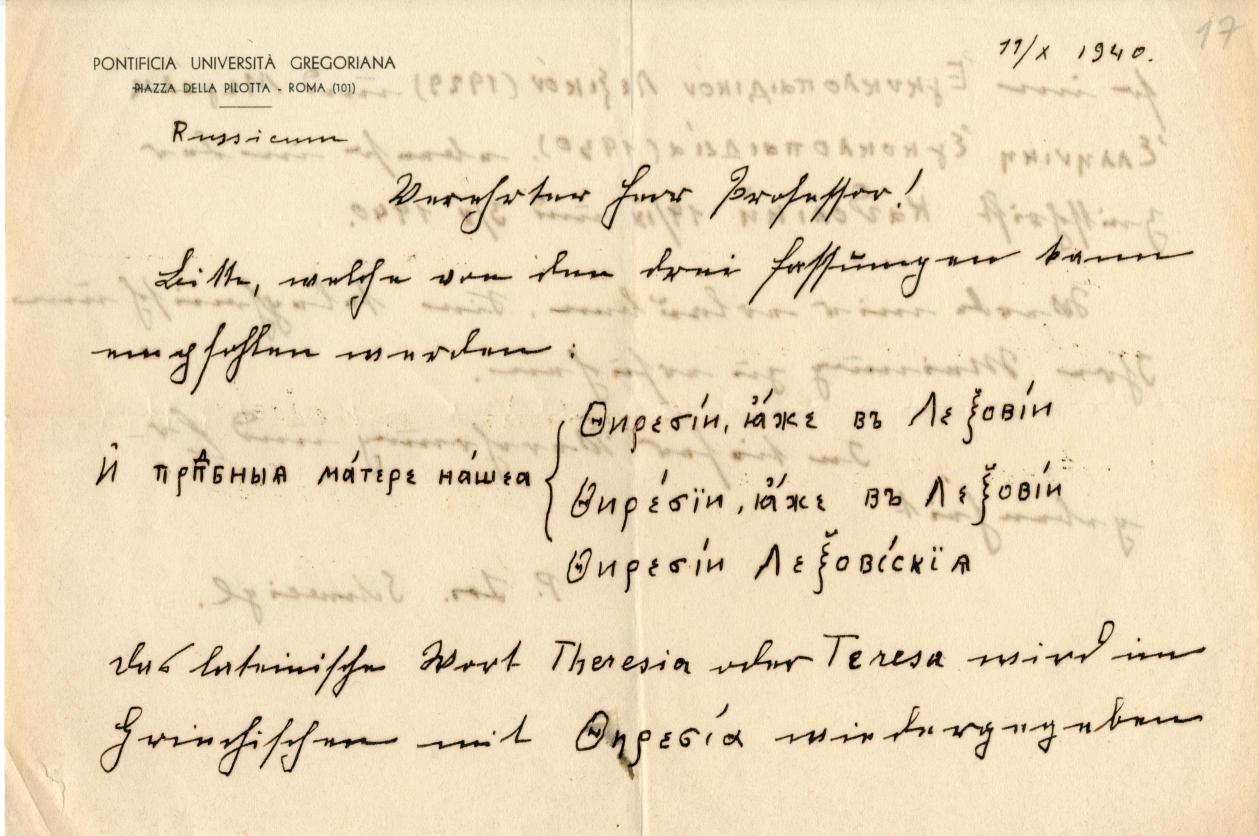 17
11/X 1940.
PONTIFICIA UNIVERSITÀ GREGORIANA
PIAZZA DELLA PILOTTA - ROMA (101)
Russicum
Verehrter Herr Professor!
Bitte, welche von den drei Fassungen kann
empfohlen werden:
Ѳиресі́и, ꙗ҆́же въ Леѯові́и
И҆ прпⷣбныѧ ма́тере на́шеѧ { Ѳире́сїи, ꙗ҆́же въ Леѯові́и
Ѳиресі́и Леѯові́скїѧ
Das lateinische Wort Theresia oder Teresa wird im
Griechischen mit Θηρεσία wiedergegeben